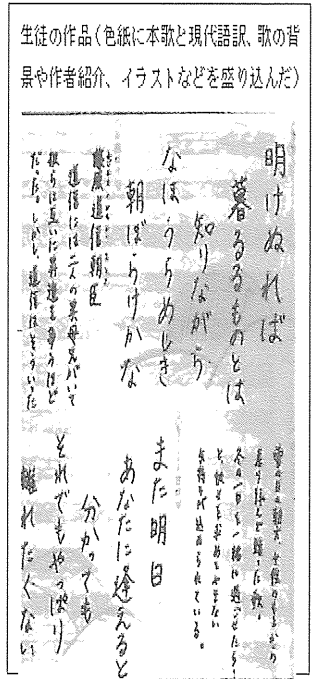 生徒の作品(色紙に本歌と現代語訳、歌の背
景や作者紹介、イラストなどを盛り込んだ)
明けぬれば
暮るるものとは
知りながら
なほうらめしき
朝ぼらけかな
藤原道信朝臣
道信には二人の異母兄がいて
彼らは互いに昇進を争うほど
だった。しかし、道信はそういった
雪の日の朝方、女性のもとから
冬の一日を一緒に過ごせたら
気持ちが込められている。
また明日
あなたに逢えると
分かっても
それでもやっぱり
離れたくない